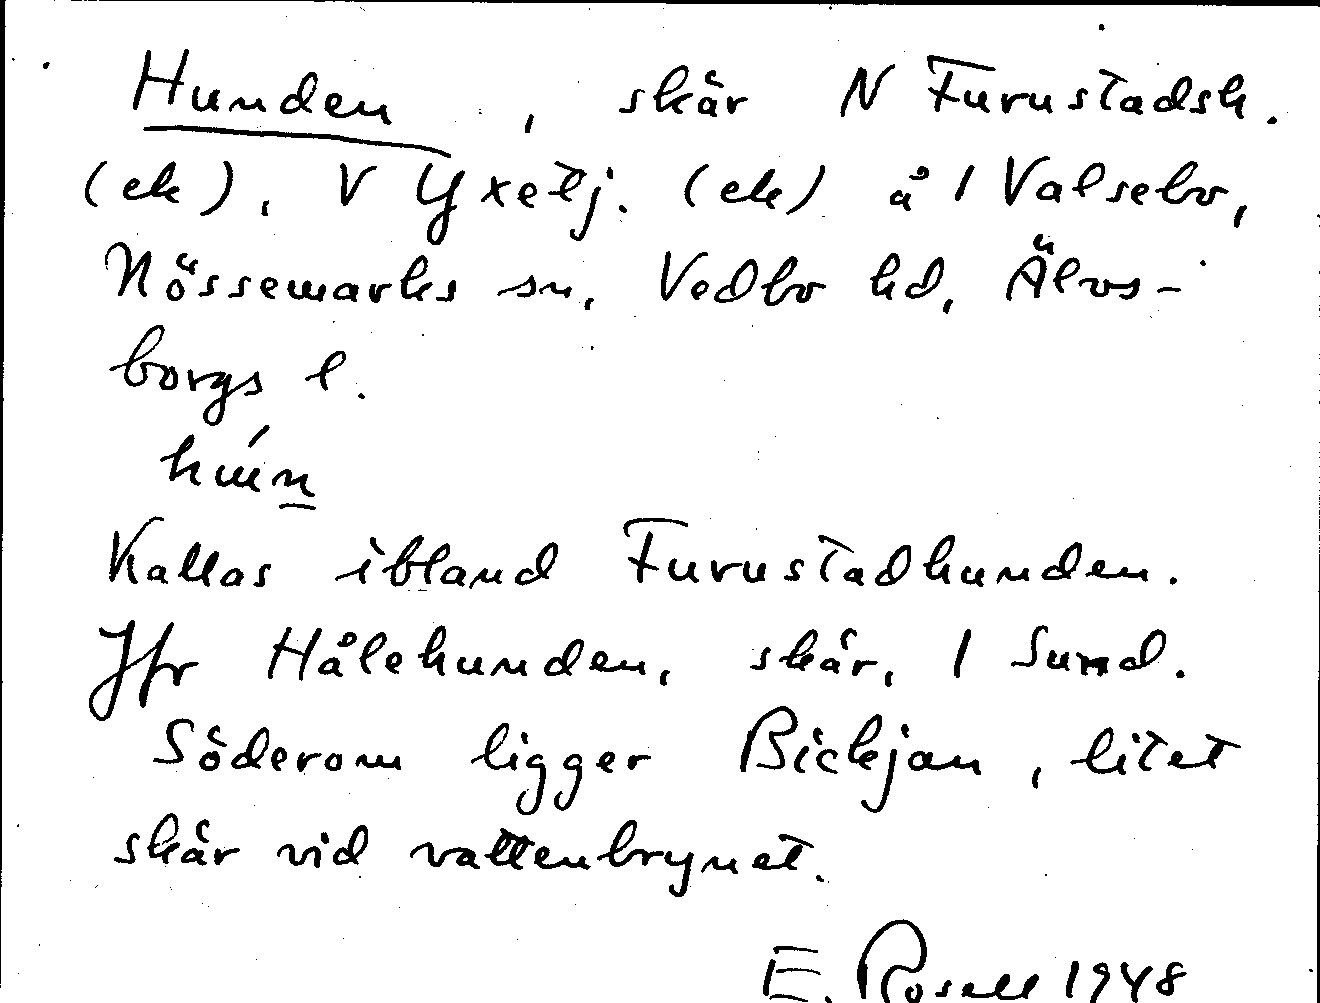 Hunden, skär N Furustadsh.
(ek), V Yxetj. (ek) å 1 Valsebo,
Nössemarks sn, Vedbo hd, Älvs-
borgs l.
húin
Kallas ibland Furustadhunden.
Jfr Hålehunden, skär, 1 Sund.
Söderom ligger Bickjan, litet
skär vid vattenbrynet.
E. Rosell 1948